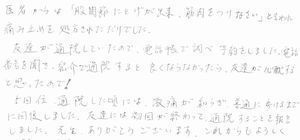 医者からは「股関節にとげが出来、筋肉をつりなさい」と言われ
痛み止めを処方されただけでした。
友達が通院していたので、電話帳で調べ予約をしました。電話
番号を聞き、紹介で通院すると良くならなかったら、友達が
と思ったので!
5回位通院した頃には、激痛が和らぎ普通に歩けるまで
に回復しました。友達には初回が終わって、通院することを報告
しました。先生ありがとうございます、これからもよろしく